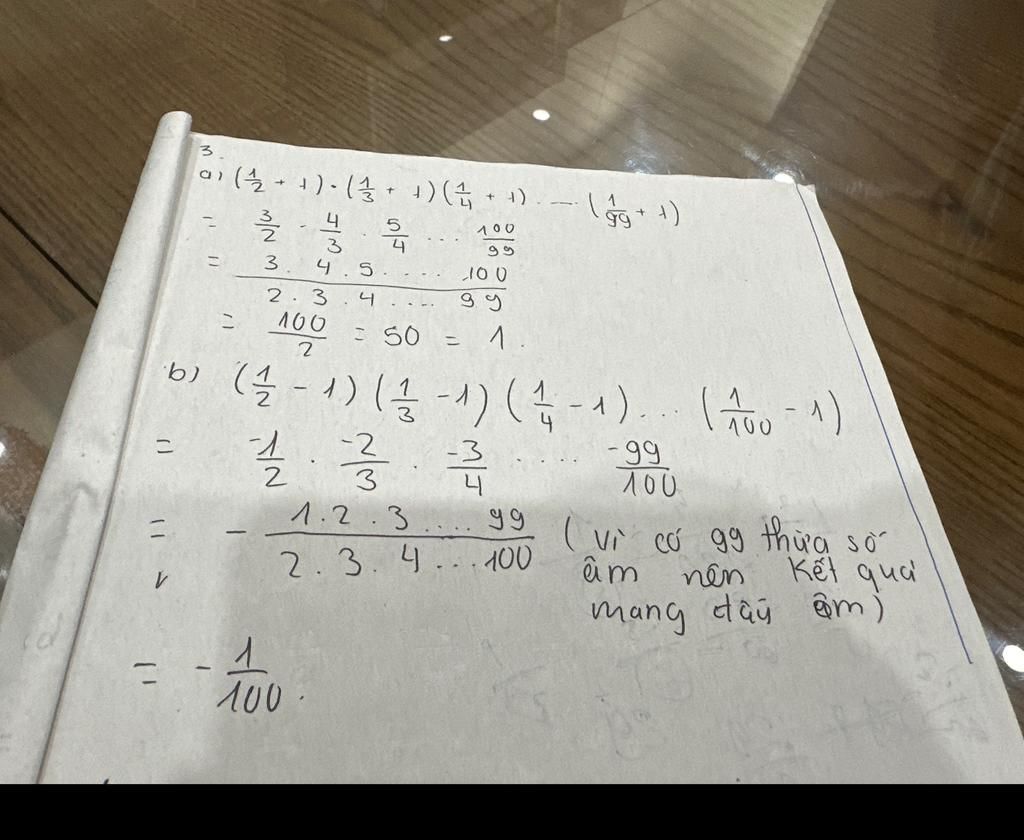 3.
a) (1/2 + 1) . (1/3 + 1) (1/4 + 1) . ... (1/99 + 1)
= 3/2 . 4/3 . 5/4 ... 100/99
= 3. 4. 5. ... .100 / 2. 3. 4 .... 99
= 100/2 = 50 = 1.
b) (1/2 - 1) (1/3 - 1) (1/4 - 1) ... (1/100 - 1)
= -1/2 . -2/3 . -3/4 . ... -99/100
= - 1.2.3 .... 99 / 2. 3. 4 ... 100 (vì có 99 thừa số
âm nên kết quả
mang dấu âm)
= - 1/100.